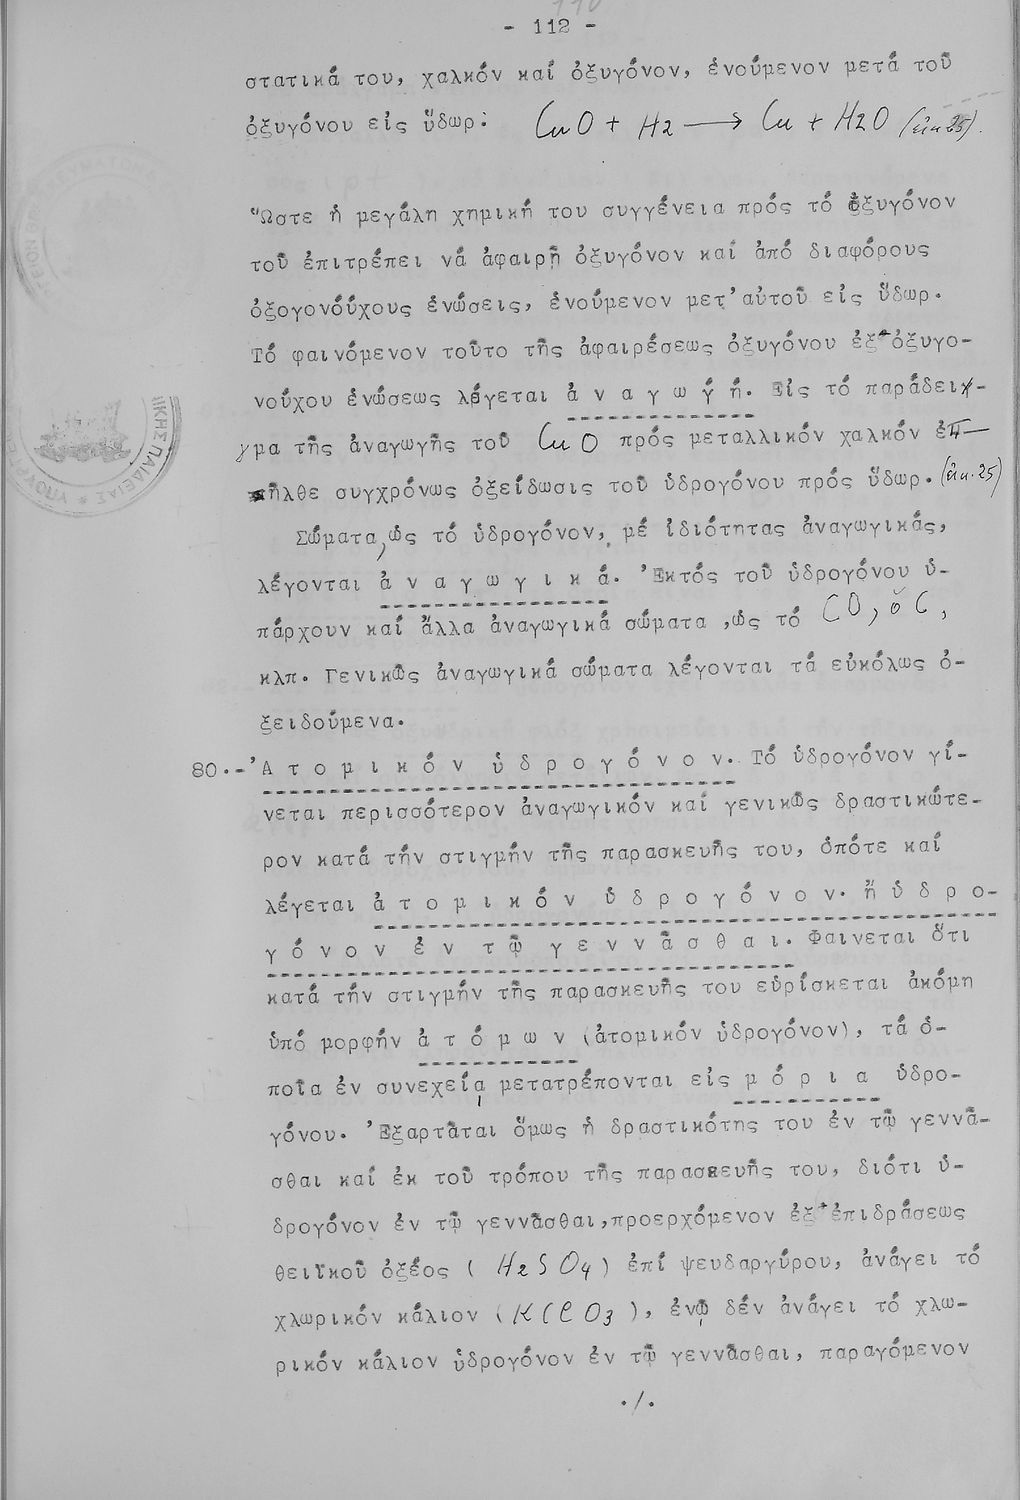 - 112 -
στατικά του, χαλκόν καί ὀξυγόνον, ἑνούμενον μετά τοῦ
ὀξυγόνου εἰς ὕδωρ: CuO + H2 → Cu + H2O (εἰκ 25).
Ὥστε ἡ μεγάλη χημική του συγγένεια πρός τό ὀξυγόνον
τοῦ ἐπιτρέπει νά ἀφαιρῇ ὀξυγόνον καί ἀπό διαφόρους
ὀξογονούχους ἑνώσεις, ἑνούμενον μετ' αὐτοῦ εἰς ὕδωρ.
Τό φαινόμενον τοῦτο τῆς ἀφαιρέσεως ὀξυγόνου ἐξ ὀξυγο-
νούχου ἑνώσεως λέγεται ἀ ν α γ ω γ ή. Εἰς τό παράδει-
γμα τῆς ἀναγωγῆς τοῦ CuO πρός μεταλλικόν χαλκόν ἐπ-
ῆλθε συγχρόνως ὀξείδωσις τοῦ ὑδρογόνου πρός ὕδωρ. (εἰκ. 25)
Σώματα, ὡς τό ὑδρογόνον, μέ ἰδιότητας ἀναγωγικάς,
λέγονται ἀ ν α γ ω γ ι κ ά. Ἐκτός τοῦ ὑδρογόνου ὑ-
πάρχουν καί ἄλλα ἀναγωγικά σώματα ,ὡς τό CO, ὁ C,
κλπ. Γενικῶς ἀναγωγικά σώματα λέγονται τά εὐκόλως ὀ-
ξειδούμενα.
80.-Ἀ τ ο μ ι κ ό ν ὑ δ ρ ο γ ό ν ο ν. Τό ὑδρογόνον γί-
νεται περισσότερον ἀναγωγικόν καί γενικῶς δραστικώτε-
ρον κατά τήν στιγμήν τῆς παρασκευῆς του, ὁπότε καί
λέγεται ἀ τ ο μ ι κ ό ν ὑ δ ρ ο γ ό ν ο ν. ἤ ὑ δ ρ ο-
γ ό ν ο ν ἐ ν τ ῷ γ ε ν ν ᾶ σ θ α ι. Φαινεται ὅτι
κατά τήν στιγμήν τῆς παρασκευῆς του εὑρίσκεται ἀκόμη
ὑπό μορφήν ἀ τ ό μ ω ν (ἀτομικόν ὑδρογόνον), τά ὁ-
ποῖα ἐν συνεχείᾳ μετατρέπονται εἰς μ ό ρ ι α ὑδρο-
γόνου. Ἐξαρτᾶται ὅμως ἡ δραστικότης του ἐν τῷ γεννᾶ-
σθαι καί ἐκ τοῦ τρόπου τῆς παρασκευῆς του, διότι ὑ-
δρογόνον ἐν τῷ γεννᾶσθαι,προερχόμενον ἐξ ἐπιδράσεως
θειϊκοῦ ὀξέος ( H2SO4) ἐπί ψευδαργύρου, ἀνάγει τό
χλωρικόν κάλιον (KClO3), ἐνῷ δέν ἀνάγει τό χλω-
ρικόν κάλιον ὑδρογόνον ἐν τῷ γεννᾶσθαι, παραγόμενον
./.